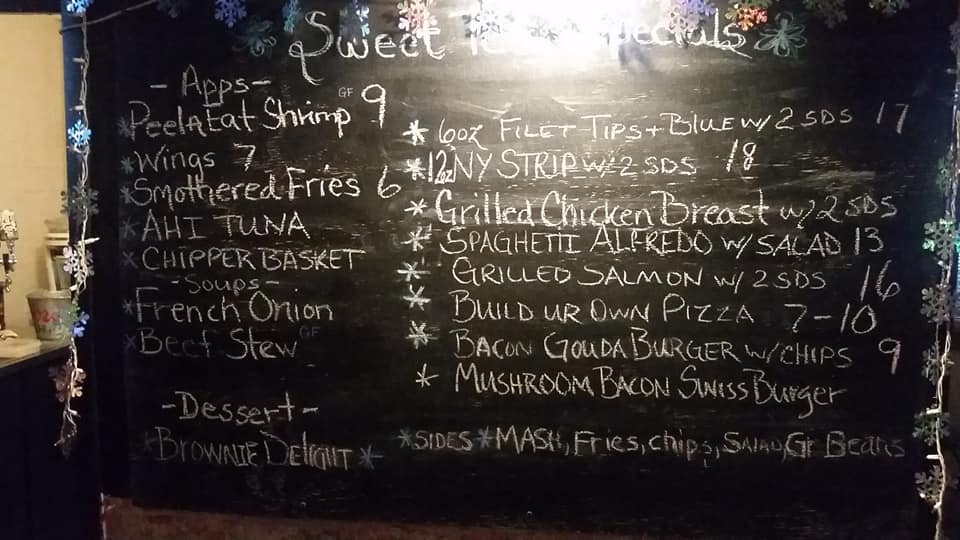 Sweet Specials
- Apps -
*Peel n Eat Shrimp GF 9
*Wings 7
*Smothered Fries 6
*AHI TUNA
*CHIPPER BASKET
- Soups -
*French Onion
*Beef Stew GF
- Dessert -
*BROWNIE DELIGHT*
* 6oz FILET TIPS + BLUE w/ 2 SDS 17
* 12oz NY STRIP w/ 2 SDS 18
* Grilled Chicken Breast w/ 2 SDS
* SPAGHETTI ALFREDO w/ SALAD 13
* GRILLED SALMON w/ 2 SDS 16
* BUILD UR OWN PIZZA 7-10
* BACON GOUDA BURGER w/ CHIPS 9
* MUSHROOM BACON SWISS Burger
*SIDES* MASH, Fries, chips, SALAD, Gr Beans